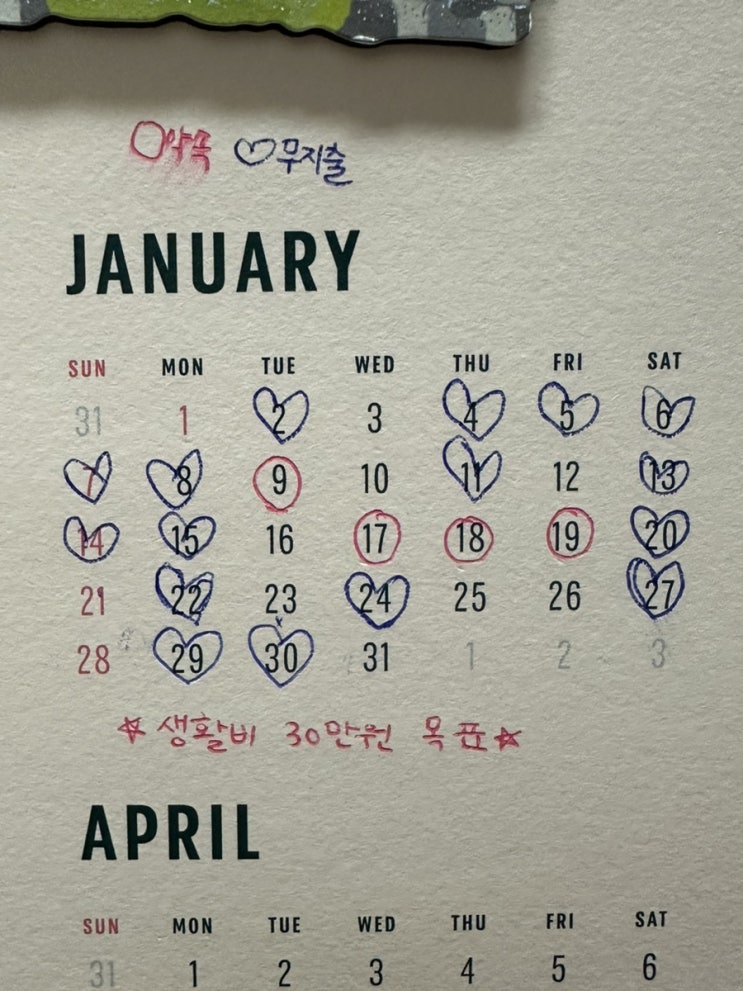 ○약속 ♡무지출
JANUARY
SUN MON TUE WED THU FRI SAT
31 1 2 3 4 5 6
7 8 9 10 11 12 13
14 15 16 17 18 19 20
21 22 23 24 25 26 27
28 29 30 31 1 2 3
☆생활비 30만원 목표☆
APRIL
SUN MON TUE WED THU FRI SAT
31 1 2 3 4 5 6